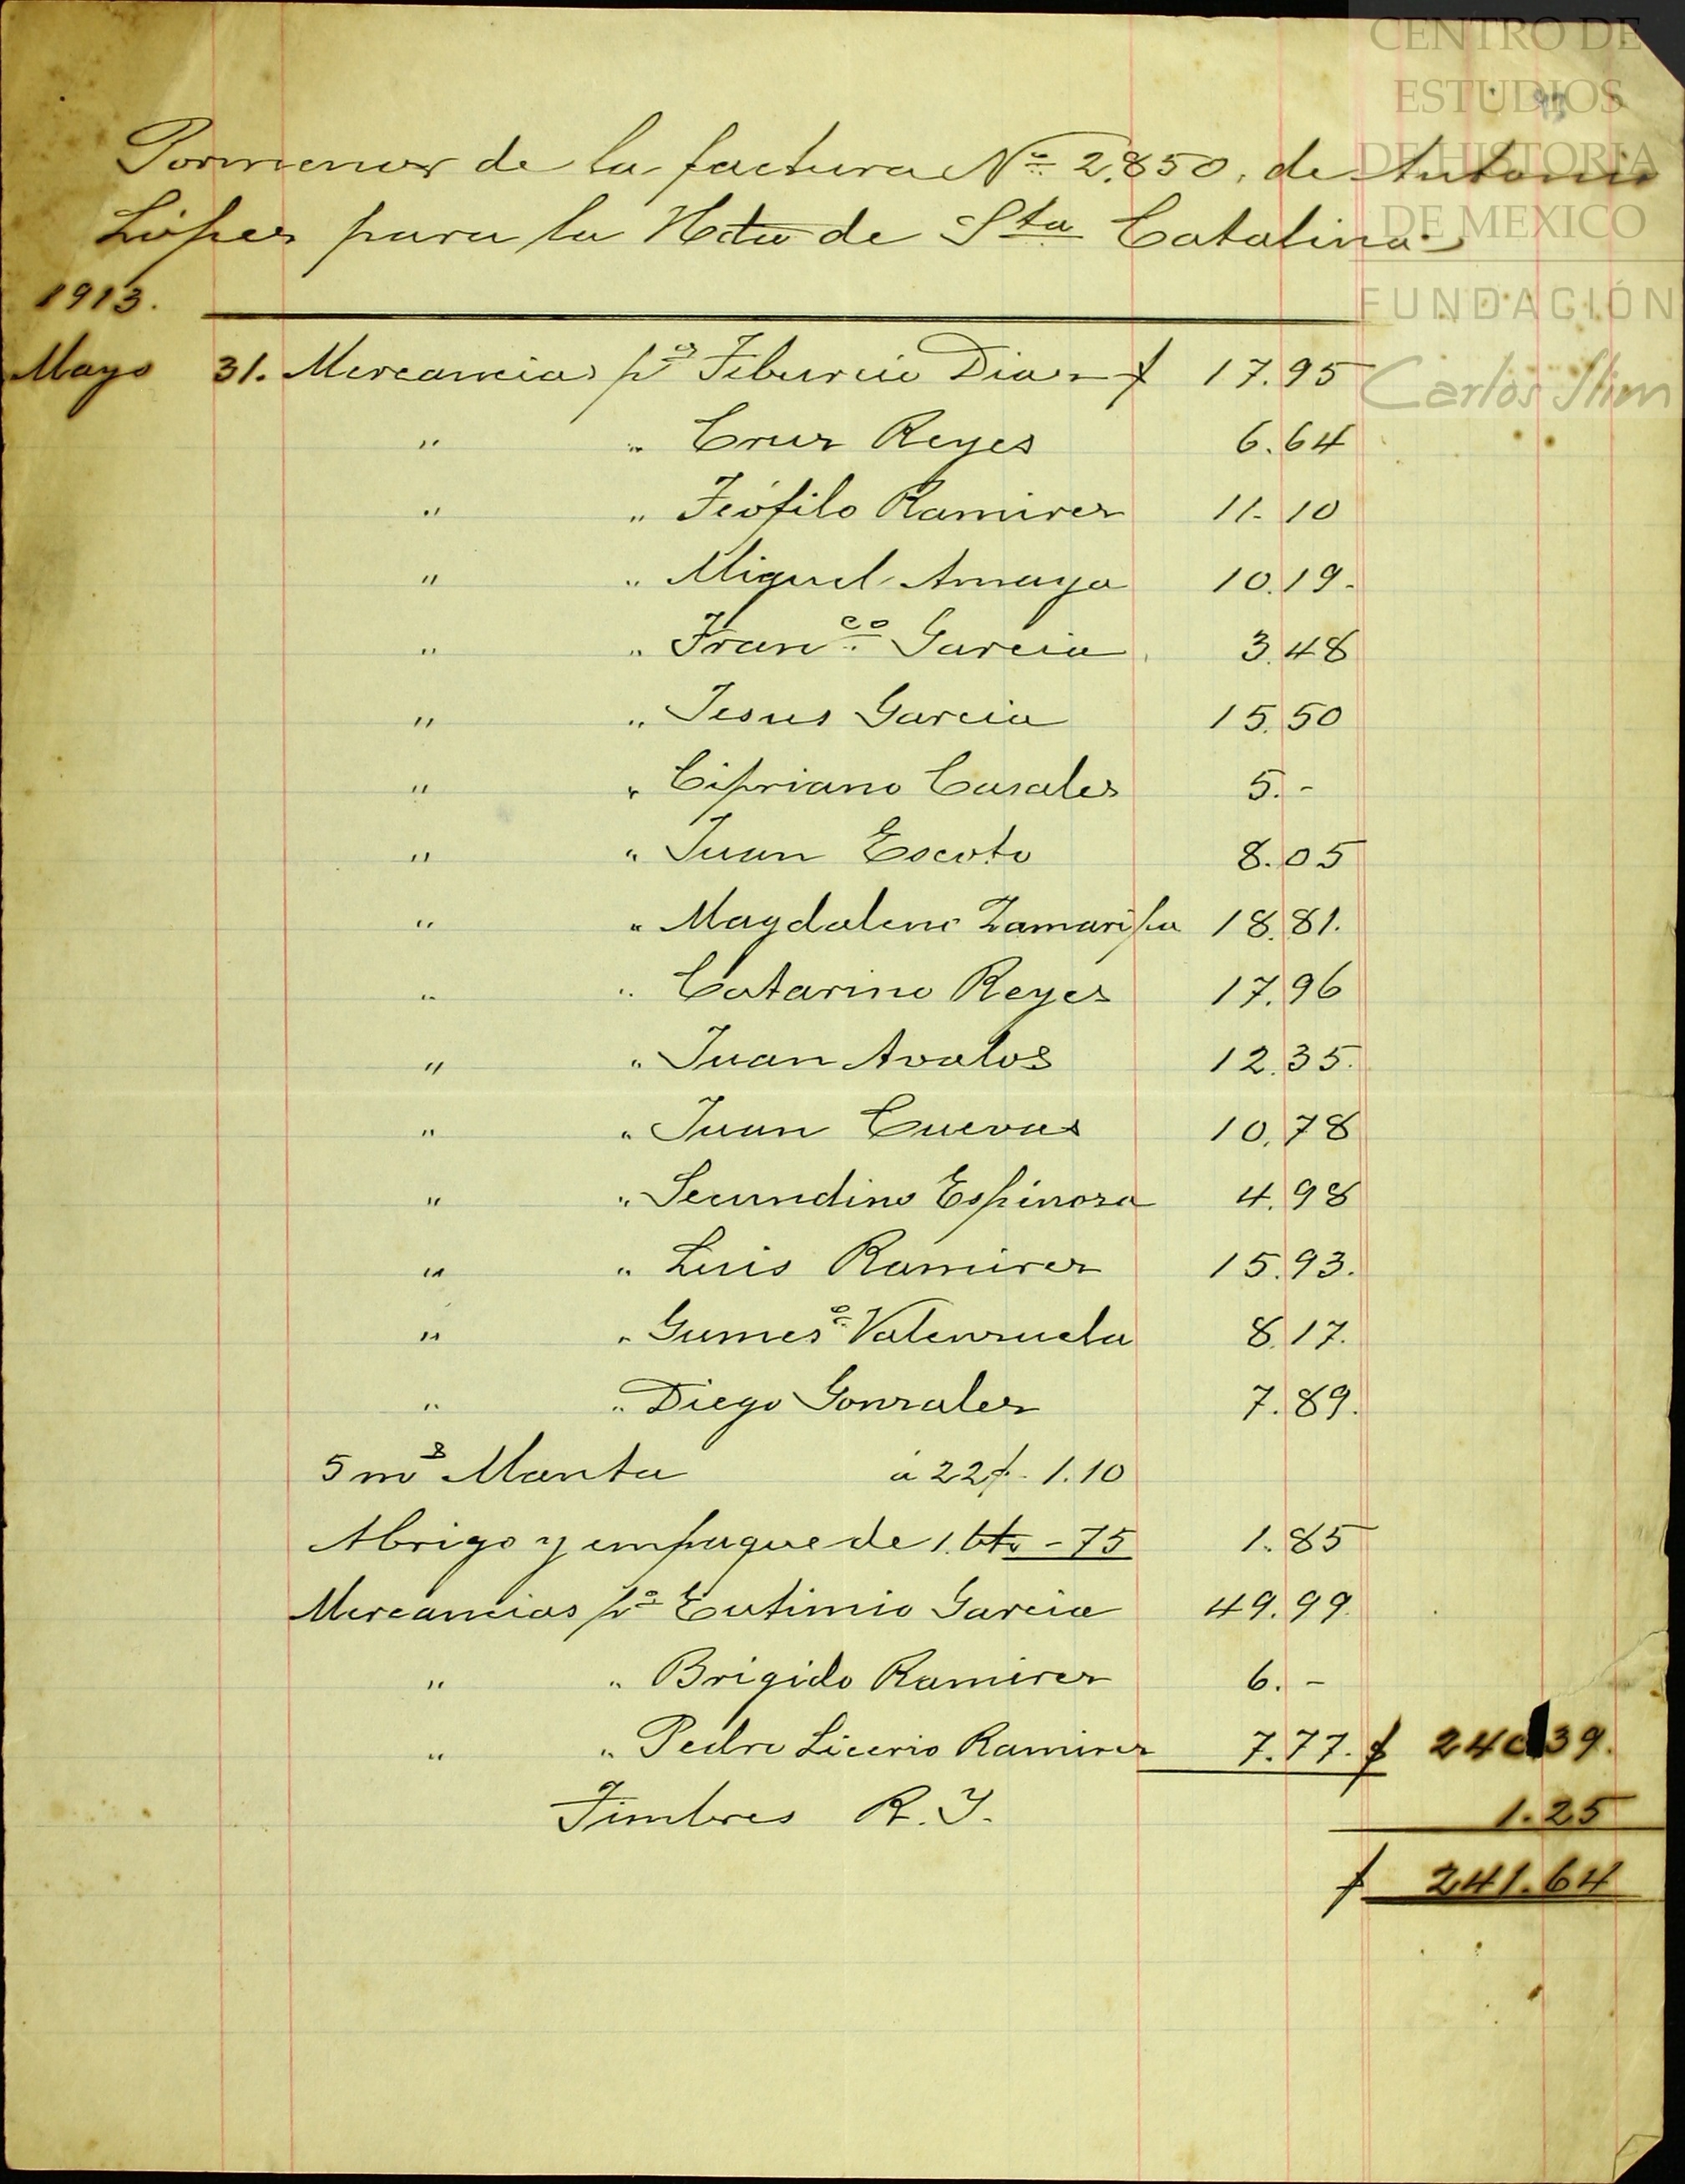 CENTRO DE
ESTUDIOS
DE HISTORIA
DE MEXICO
FUNDACIÓN
Carlos Slim
Pormenor de la factura Nº 2,850, de Antonio
López para la Hda de Sta Catalina.
1913.
Mayo 31. Mercancias pª Tiburcio Diaz $ 17.95
" " Cruz Reyes 6.64
" " Teófilo Ramirez 11.10
" " Miguel Amaya 10.19.
" " Franco Garcia 3.48
" " Jesus Garcia 15.50
" " Cipriano Casales 5.-
" " Juan Escoto 8.05
" " Magdaleno Zamaripa 18.81.
" " Catarino Reyes 17.96
" " Juan Avalos 12.35.
" " Juan Cuevas 10.78
" " Secundino Espinoza 4.98
" " Luis Ramirez 15.93.
" " Gumeso Valenzuela 8.17.
" " Diego Gonzalez 7.89.
5 ms Manta á 22¢ - 1.10
Abrigo y empaque de 1. bto - 75 1.85
Mercancias pª Eutimio Garcia 49.99.
" " Brigido Ramirez 6. -
" " Pedro Licerio Ramirez 7.77. $ 240.39.
Timbres R. I. 1.25
$ 241.64